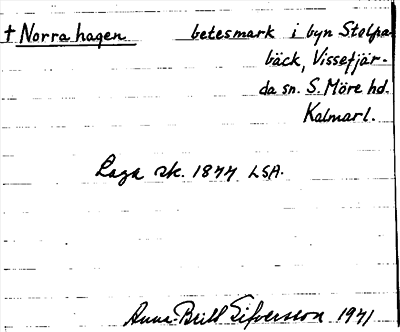 † Norra hagen betesmark i byn Stolpa
bäck, Vissefjär-
da sn. S. Möre hd.
Kalmarl.
Laga sk. 1877 LSA.
Anna-Britt Sifversson 1971